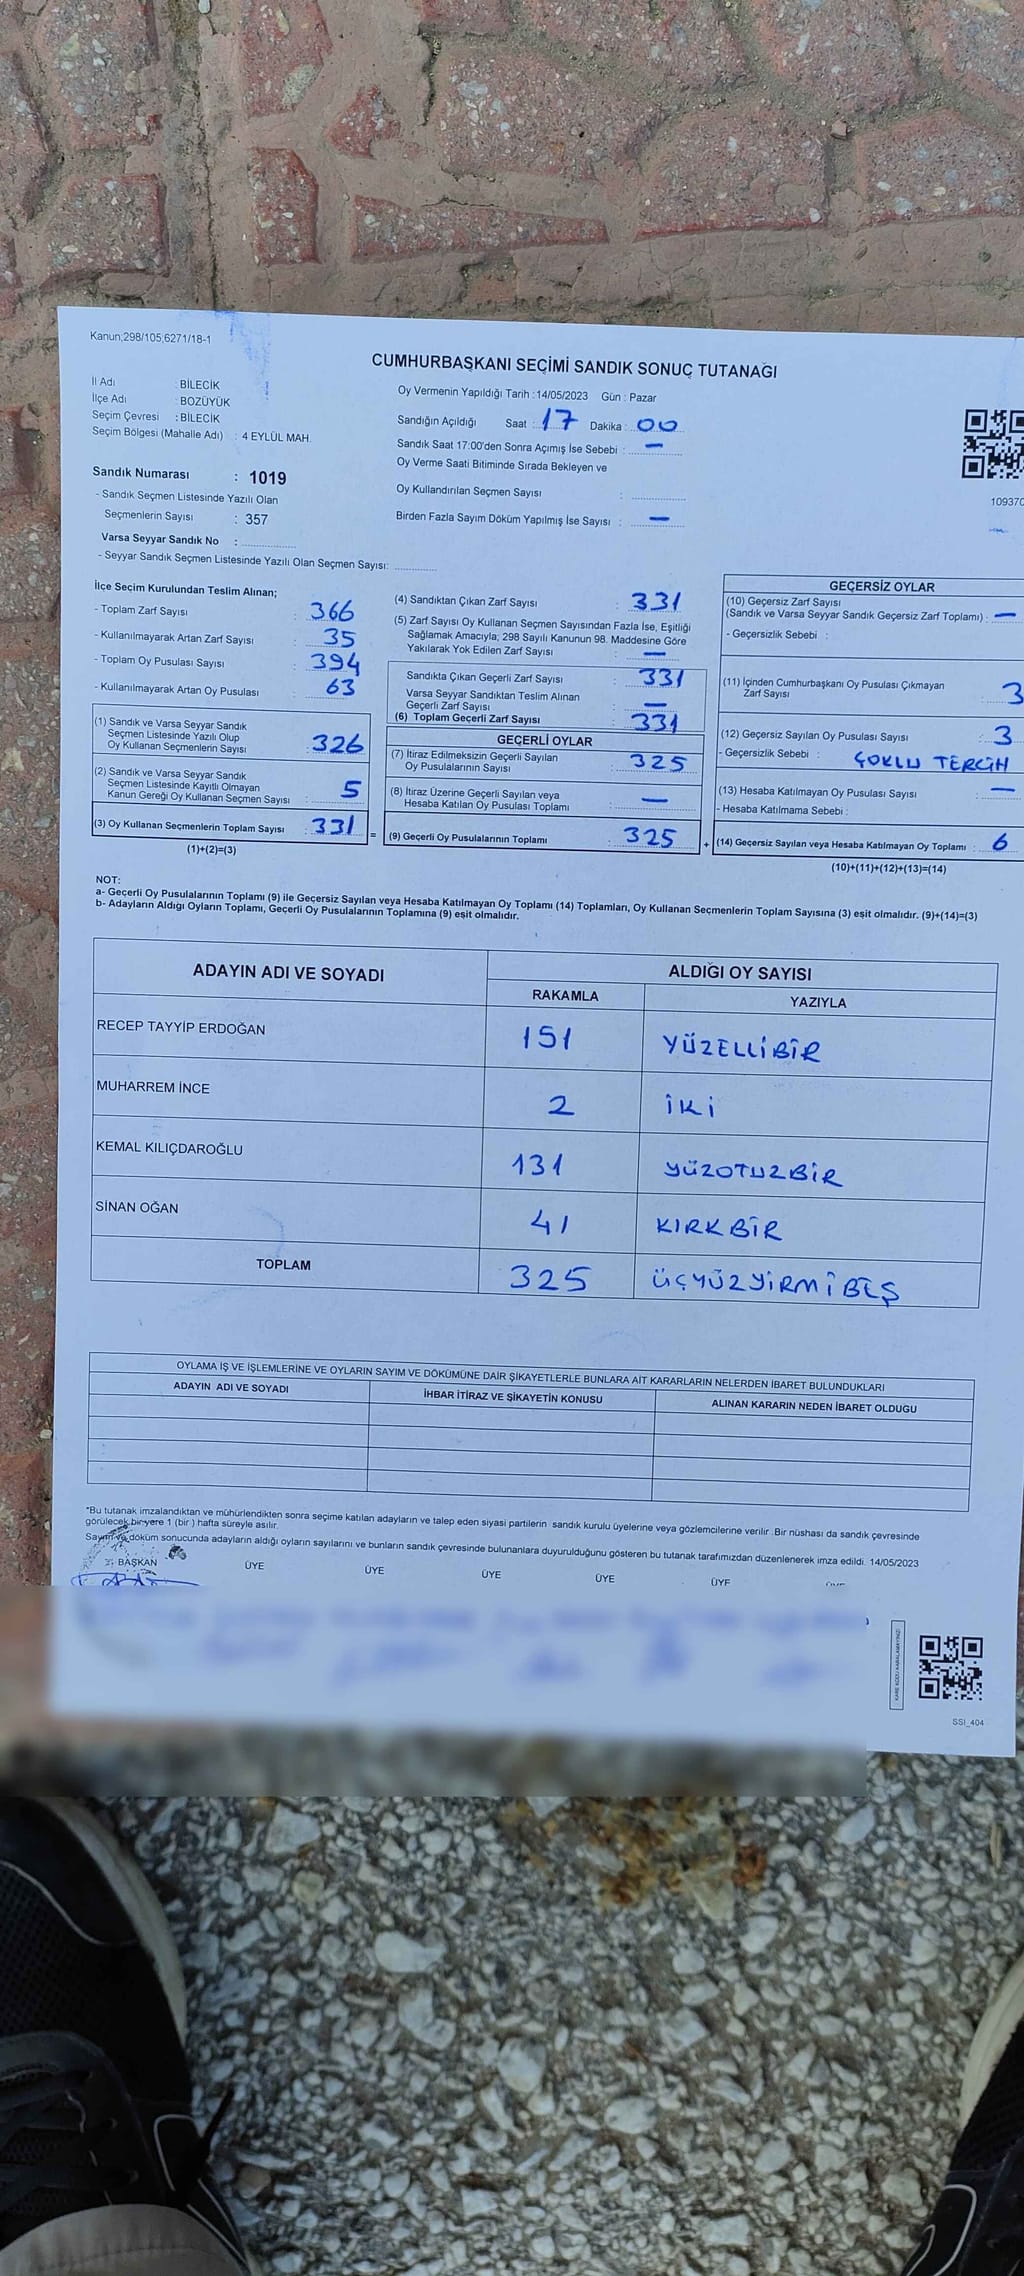 Kanun;298/105;6271/18-1
CUMHURBAŞKANI SEÇİMİ SANDIK SONUÇ TUTANAĞI
İl Adı : BİLECİK
İlçe Adı : BOZÜYÜK
Seçim Çevresi : BİLECİK
Seçim Bölgesi (Mahalle Adı) : 4 EYLÜL MAH.
Sandık Numarası : 1019
- Sandık Seçmen Listesinde Yazılı Olan
Seçmenlerin Sayısı : 357
Varsa Seyyar Sandık No :
- Seyyar Sandık Seçmen Listesinde Yazılı Olan Seçmen Sayısı:
Oy Vermenin Yapıldığı Tarih :14/05/2023 Gün : Pazar
Sandığın Açıldığı Saat : 17 Dakika : 00
Sandık Saat 17:00'den Sonra Açımış İse Sebebi : —
Oy Verme Saati Bitiminde Sırada Bekleyen ve
Oy Kullandırılan Seçmen Sayısı :
Birden Fazla Sayım Döküm Yapılmış İse Sayısı : —
10937
İlçe Seçim Kurulundan Teslim Alınan;
- Toplam Zarf Sayısı : 366
- Kullanılmayarak Artan Zarf Sayısı : 35
- Toplam Oy Pusulası Sayısı : 394
- Kullanılmayarak Artan Oy Pusulası : 63
(1) Sandık ve Varsa Seyyar Sandık
Seçmen Listesinde Yazılı Olup
Oy Kullanan Seçmenlerin Sayısı : 326
(2) Sandık ve Varsa Seyyar Sandık
Seçmen Listesinde Kayıtlı Olmayan
Kanun Gereği Oy Kullanan Seçmen Sayısı : 5
(3) Oy Kullanan Seçmenlerin Toplam Sayısı : 331 =
(1)+(2)=(3)
(4) Sandıktan Çıkan Zarf Sayısı : 331
(5) Zarf Sayısı Oy Kullanan Seçmen Sayısından Fazla İse, Eşitliği
Sağlamak Amacıyla; 298 Sayılı Kanunun 98. Maddesine Göre
Yakılarak Yok Edilen Zarf Sayısı : —
Sandıkta Çıkan Geçerli Zarf Sayısı : 331
Varsa Seyyar Sandıktan Teslim Alınan
Geçerli Zarf Sayısı : —
(6) Toplam Geçerli Zarf Sayısı : 331
GEÇERLİ OYLAR
(7) İtiraz Edilmeksizin Geçerli Sayılan
Oy Pusulalarının Sayısı : 325
(8) İtiraz Üzerine Geçerli Sayılan veya
Hesaba Katılan Oy Pusulası Toplamı : —
(9) Geçerli Oy Pusulalarının Toplamı : 325 +
GEÇERSİZ OYLAR
(10) Geçersiz Zarf Sayısı
(Sandık ve Varsa Seyyar Sandık Geçersiz Zarf Toplamı) : —
- Geçersizlik Sebebi :
(11) İçinden Cumhurbaşkanı Oy Pusulası Çıkmayan
Zarf Sayısı : 3
(12) Geçersiz Sayılan Oy Pusulası Sayısı : 3
- Geçersizlik Sebebi : ÇOKLU TERCİH
(13) Hesaba Katılmayan Oy Pusulası Sayısı : —
- Hesaba Katılmama Sebebi :
(14) Geçersiz Sayılan veya Hesaba Katılmayan Oy Toplamı : 6
(10)+(11)+(12)+(13)=(14)
NOT:
a- Geçerli Oy Pusulalarının Toplamı (9) ile Geçersiz Sayılan veya Hesaba Katılmayan Oy Toplamı (14) Toplamları, Oy Kullanan Seçmenlerin Toplam Sayısına (3) eşit olmalıdır. (9)+(14)=(3)
b- Adayların Aldığı Oyların Toplamı, Geçerli Oy Pusulalarının Toplamına (9) eşit olmalıdır.
ADAYIN ADI VE SOYADI ALDIĞI OY SAYISI
RAKAMLA YAZIYLA
RECEP TAYYİP ERDOĞAN 151 YÜZELLİBİR
MUHARREM İNCE 2 İKİ
KEMAL KILIÇDAROĞLU 131 YÜZOTUZBİR
SİNAN OĞAN 41 KIRKBİR
TOPLAM 325 ÜÇYÜZYİRMİBEŞ
OYLAMA İŞ VE İŞLEMLERİNE VE OYLARIN SAYIM VE DÖKÜMÜNE DAİR ŞİKAYETLERLE BUNLARA AİT KARARLARIN NELERDEN İBARET BULUNDUKLARI
ADAYIN ADI VE SOYADI İHBAR İTİRAZ VE ŞİKAYETİN KONUSU ALINAN KARARIN NEDEN İBARET OLDUĞU
*Bu tutanak imzalandıktan ve mühürlendikten sonra seçime katılan adayların ve talep eden siyasi partilerin sandık kurulu üyelerine veya gözlemcilerine verilir .Bir nüshası da sandık çevresinde
görülecek bir yere 1 (bir ) hafta süreyle asılır.
Sayım ve döküm sonucunda adayların aldığı oyların sayılarını ve bunların sandık çevresinde bulunanlara duyurulduğunu gösteren bu tutanak tarafımızdan düzenlenerek imza edildi. 14/05/2023
BAŞKAN ÜYE ÜYE ÜYE ÜYE ÜYE
SSI_404